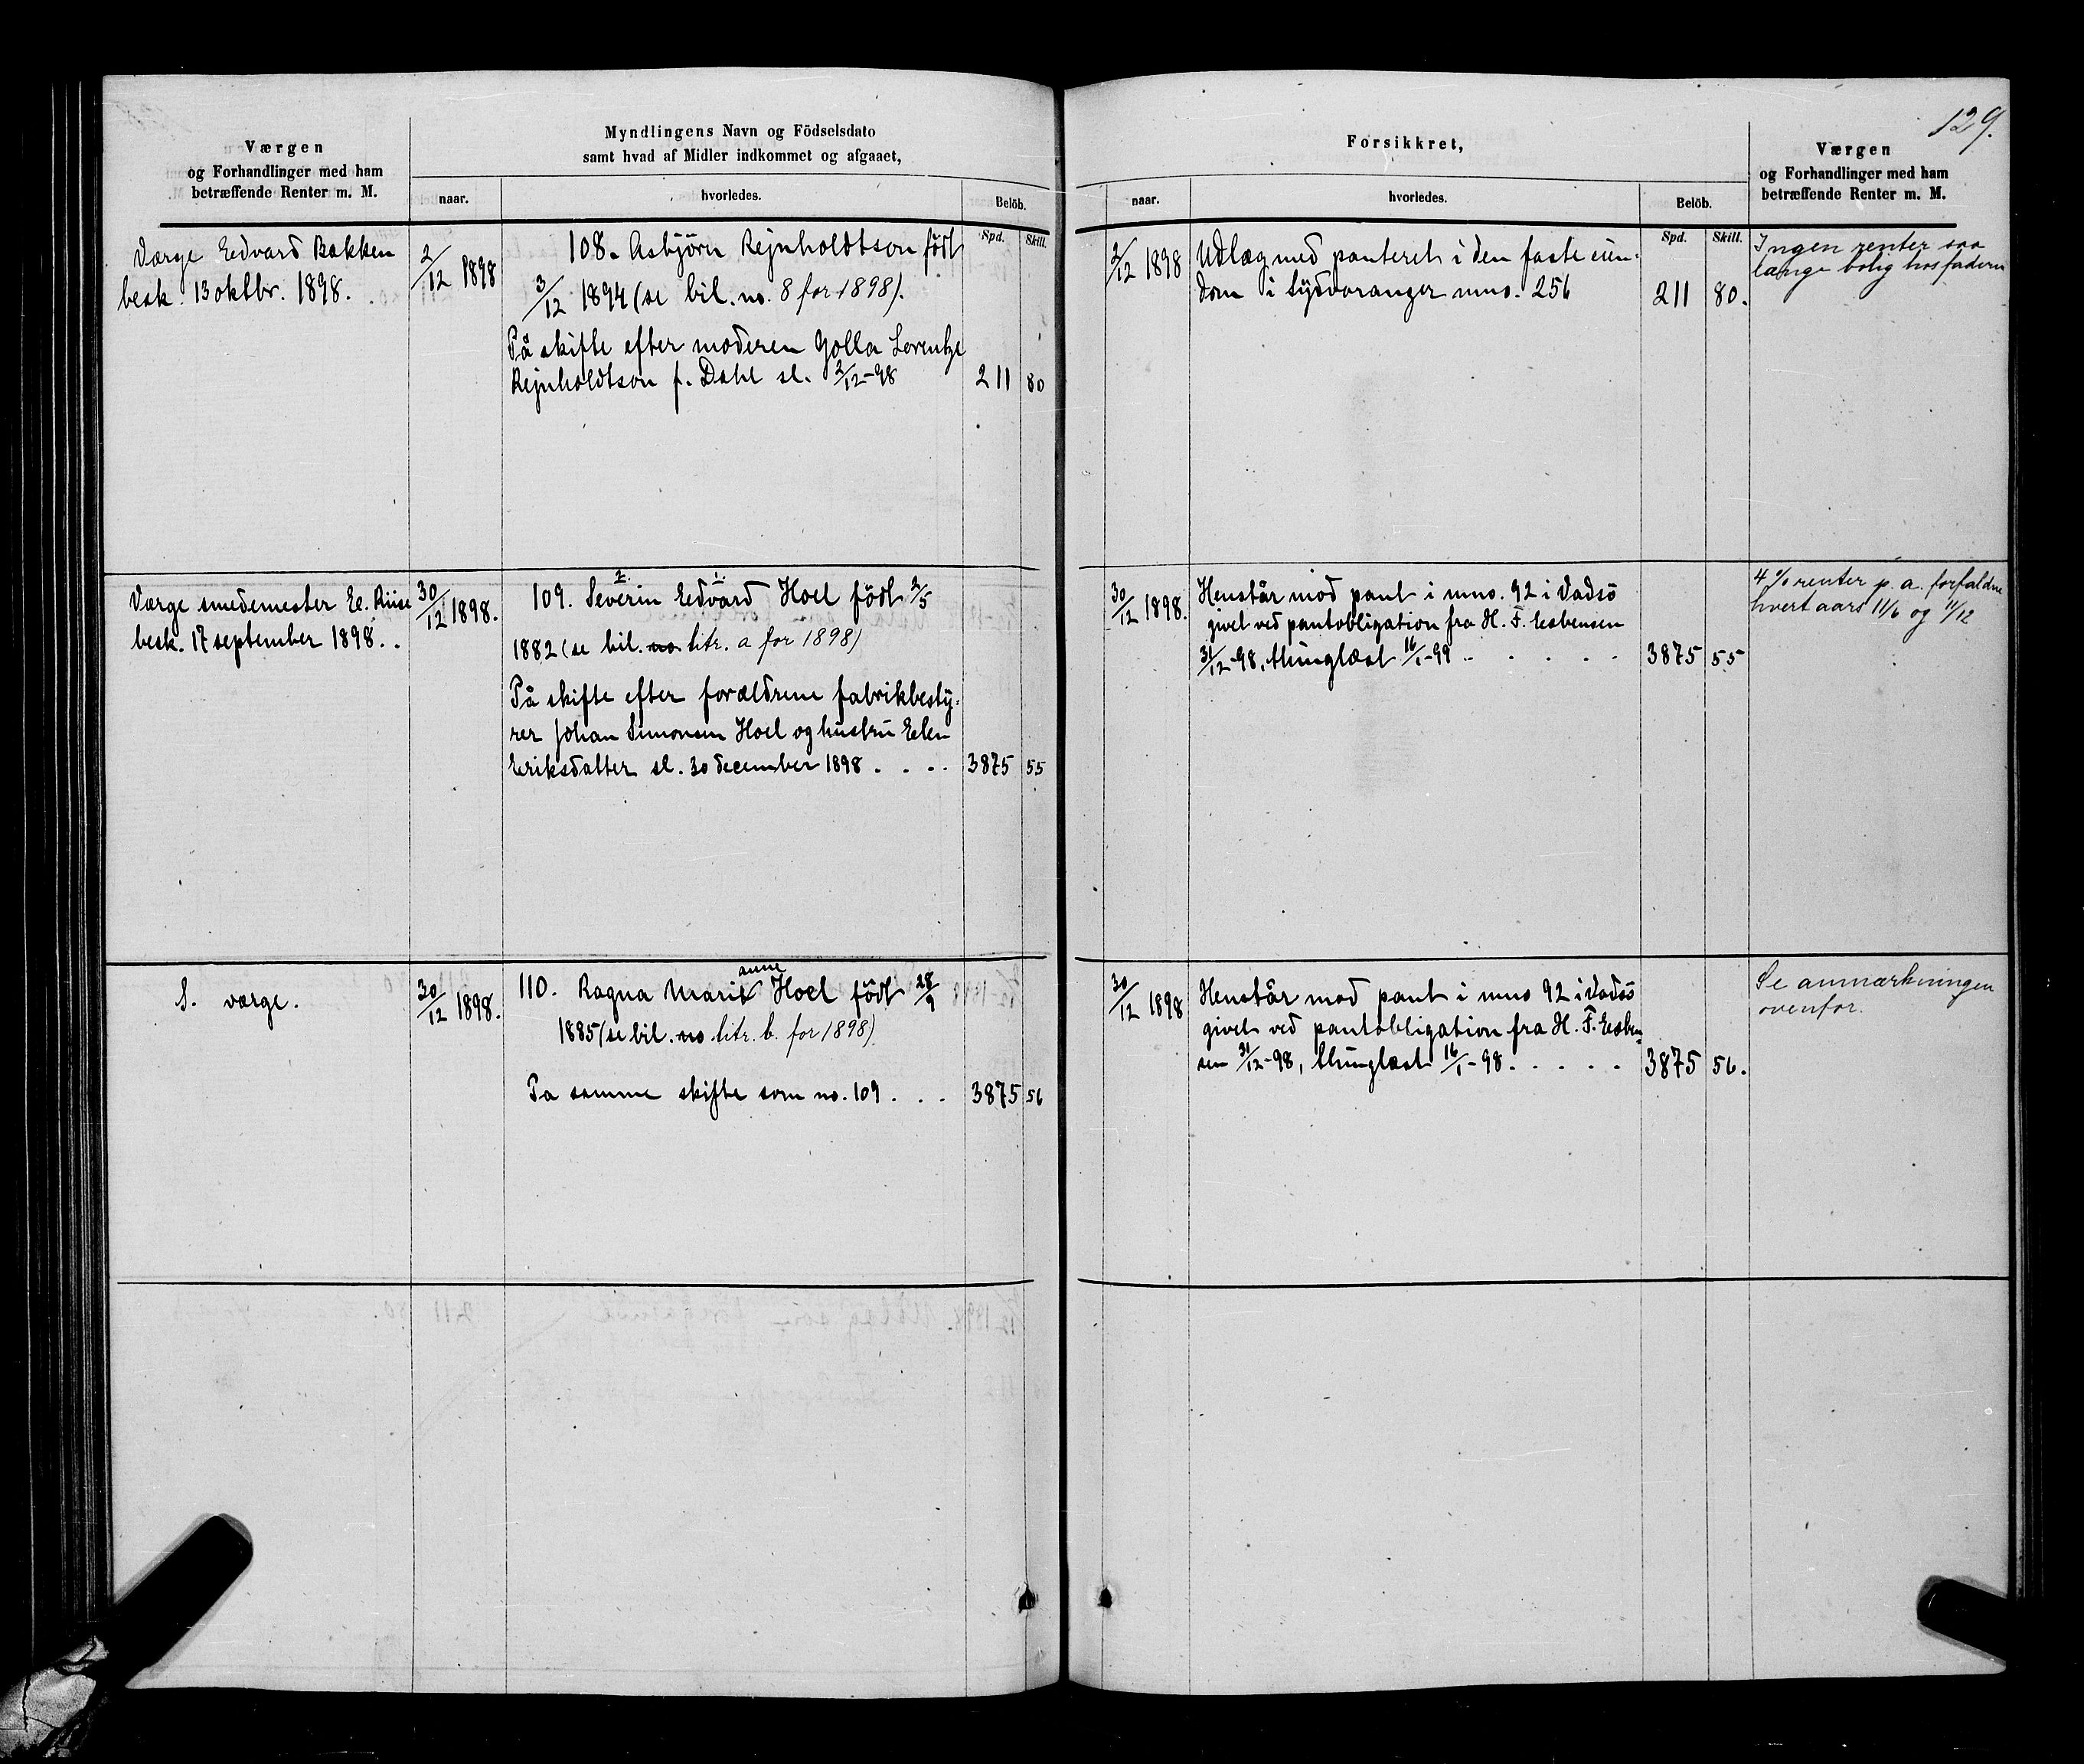 129.
Værgen
og Forhandlinger med ham
betræffende Renter m. M.
Myndlingens Navn og Födselsdato
samt hvad af Midler indkommet og afgaaet,
naar.
hvorledes.
Belöb.
Spd.
Skill.
Værge Edvard Bakken
besk. 13 oktbr. 1898.
2/12 1898
108. Asbjörn Rejnholdtson födt
3/12 1894 (se bil. no. 8 for 1898).
På skifte efter moderen Golla Lorentze
Rejnholdtson f. Dahl sl. 2/12-98
211 80
Værge smedemester E. Riise
besk. 17 september 1898. .
30/12 1898.
2. 1.
109. Severin Edvard Hoel födt 2/5
1882 (se bil. no. litr. a for 1898)
På skifte efter forældrene fabrikbesty-
rer Johan Simonsen Hoel og hustru Elen
Eriksdatter sl. 30 december 1898 . . . .
3875 55
S. værge.
30/12 1898.
anne
110. Ragna Marie Hoel födt 28/9
1885 (se bil. no litr. b. for 1898)
Pa samme skifte som no. 109 . . .
3875 56
Forsikkret,
naar.
hvorledes.
Belöb.
Spd.
Skill.
Værgen
og Forhandlinger med ham
betræffende Renter m. M.
2/12 1898
Udlæg med panteret i den faste eien-
dom i Sydvaranger mno. 256
211 80.
Ingen renter saa
længe bolig hos faderen
30/12 1898.
Henstår mod pant i mno. 92 i Vadsö
givet ved pantobligation fra H. F. Esbensen
31/12-98, thinglæst 16/1-99 . . . . . .
3875 55
4 % renter p. a. forfaldne
hvert aars 11/6 og 11/12
30/12 1898
Henstår mod pant i mno 92 i Vadsö
givet ved pantobligation fra H. F. Esben-
sen 31/12-98, thinglæst 16/1-98 . . . . .
3875 56.
Se anmærkningen
ovenfor.